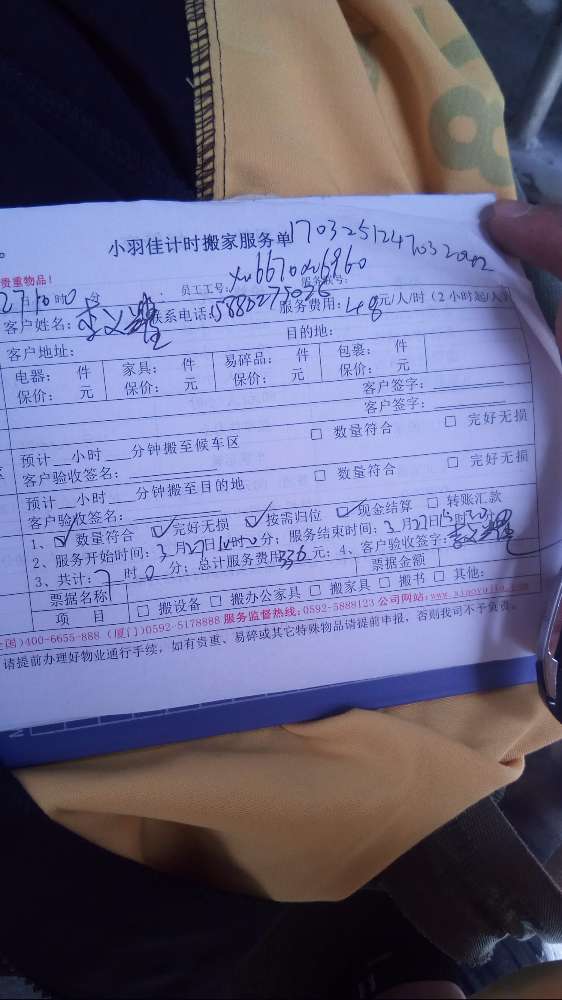 小羽佳计时搬家服务单 170325124703
贵重物品!
27 10时0分 员工工号: 服务账号:
客户姓名: 联系电话: 服务费用: 48元/人/时(2小时起/人
客户地址: 目的地:
电器: 件 家具: 件 易碎品: 件 包裹: 件
保价: 元 保价: 元 保价: 元 保价: 元
客户签字:
客户签字:
预计 小时 分钟搬至候车区 □ 数量符合 □ 完好无损
客户验收签名:
预计 小时 分钟搬至目的地 □ 数量符合 □ 完好无损
客户验收签名:
1、☑ 数量符合 ☑ 完好无损 ☑ 按需归位 ☑ 现金结算 □ 转账汇款
2、服务开始时间: 3月27日 时 分; 服务结束时间: 3月27日 时 分
3、共计: 7时0分; 总计服务费用336元; 4、客户验收签字:
票据名称 票据金额
项目 □ 搬设备 □ 搬办公家具 □ 搬家具 □ 搬书 □ 其他:
国)400-6655-888 (厦门)0592-5178888 服务监督热线: 0592-5888123 公司网站:
请提前办理好物业通行手续, 如有贵重、易碎或其它特殊物品请提前申报, 否则我司不予负责。